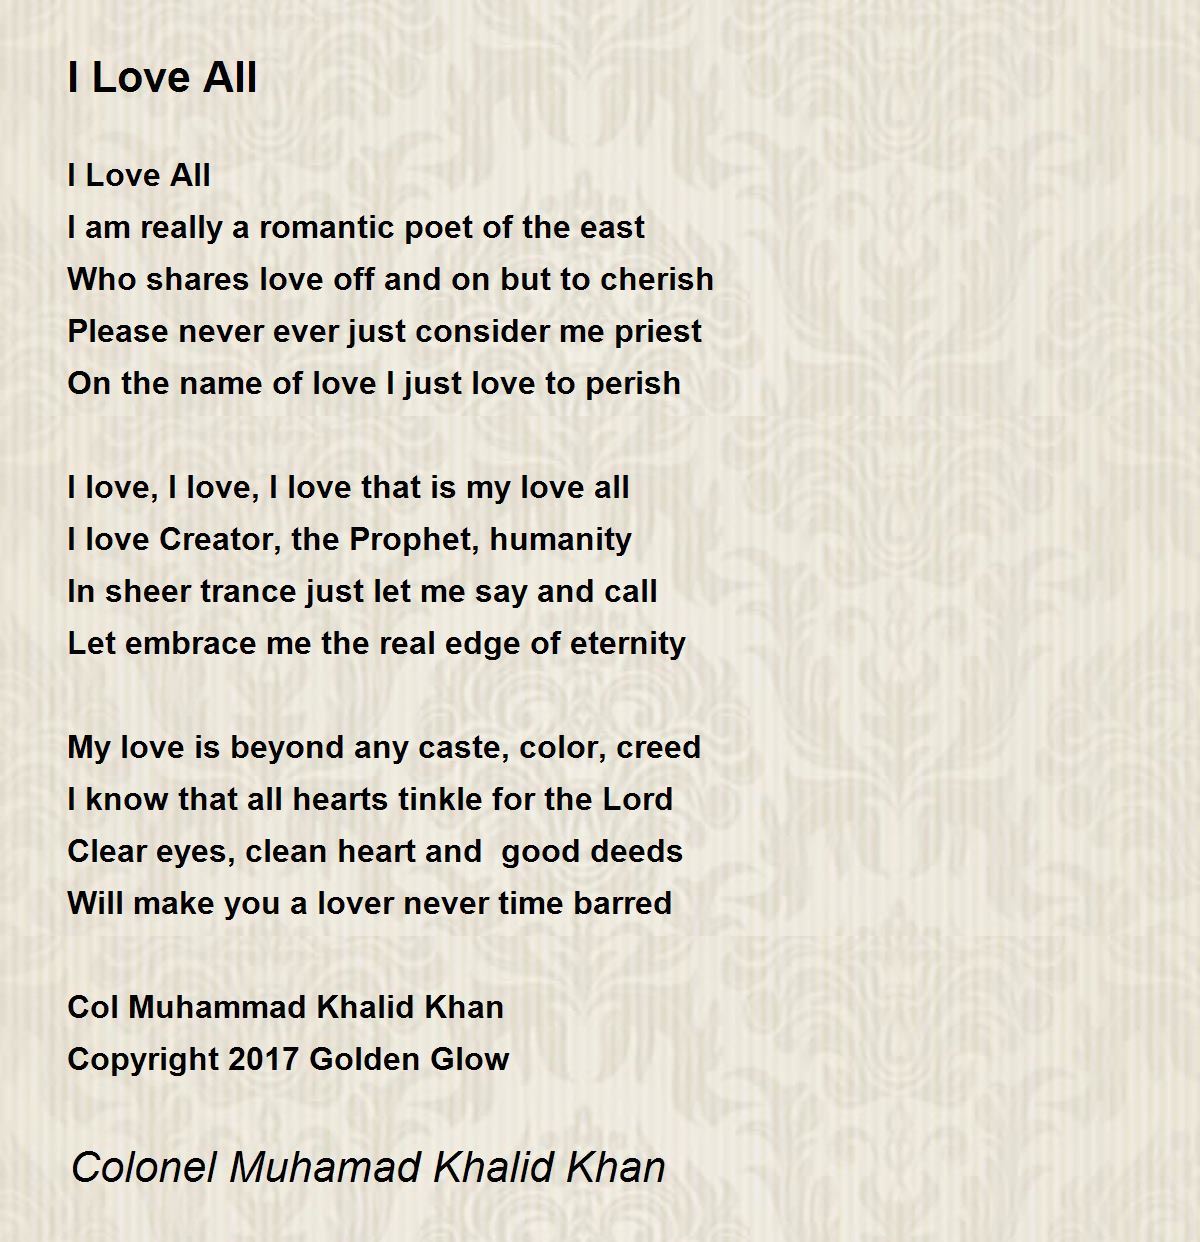 I Love All
I Love All
I am really a romantic poet of the east
Who shares love off and on but to cherish
Please never ever just consider me priest
On the name of love I just love to perish
I love, I love, I love that is my love all
I love Creator, the Prophet, humanity
In sheer trance just let me say and call
Let embrace me the real edge of eternity
My love is beyond any caste, color, creed
I know that all hearts tinkle for the Lord
Clear eyes, clean heart and  good deeds
Will make you a lover never time barred
Col Muhammad Khalid Khan
Copyright 2017 Golden Glow
Colonel Muhamad Khalid Khan